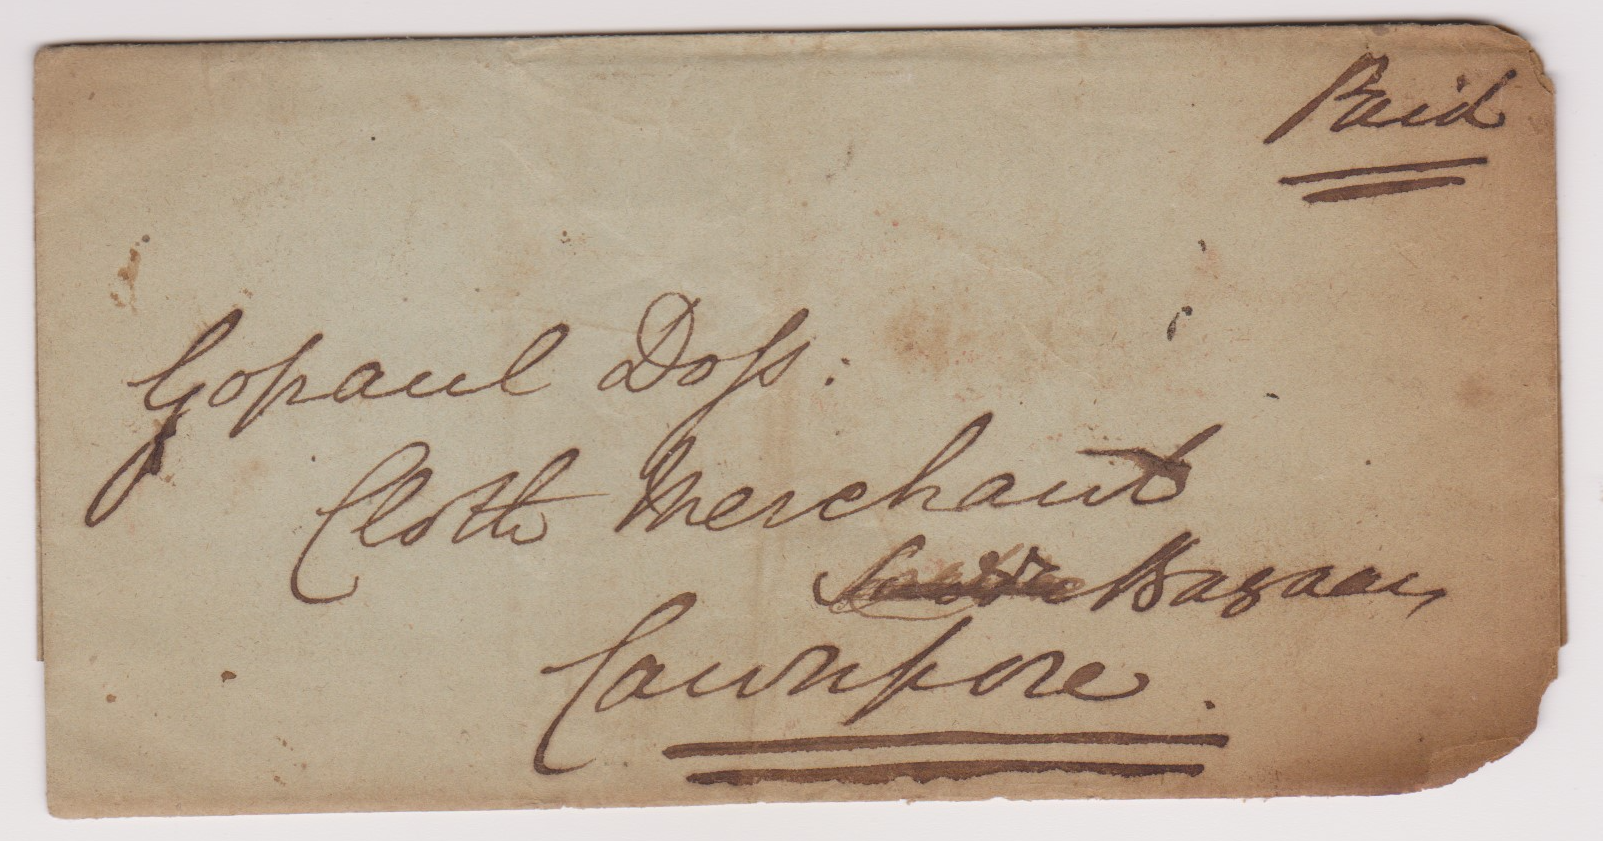 Paid
Gopaul Doss:
Cloth Merchant
Bazaar,
Cawnpore.